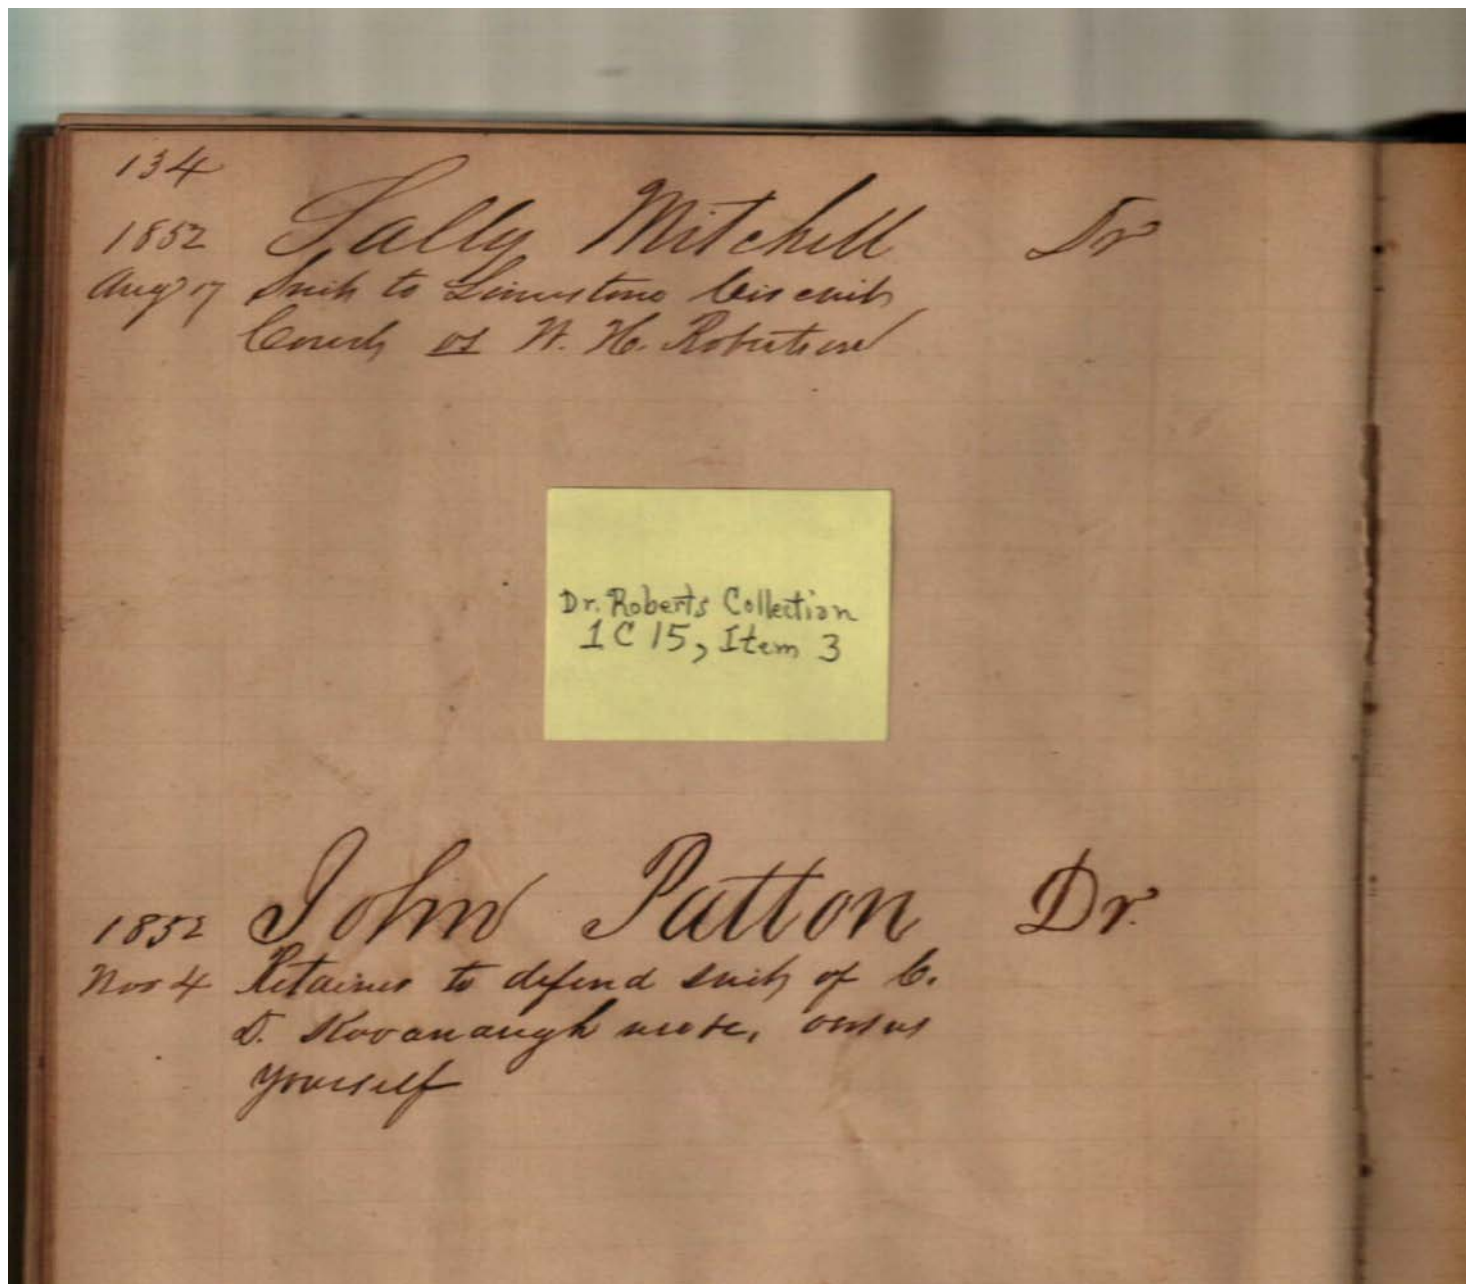 134
1852 Sally Mitchell Dr
Aug 17 Suit to Limestone Circuit
Court of W. H. Robertson
Dr. Roberts Collection
1 C 15, Item 3
1852 John Patton Dr.
Nov 4 Retainer to defend suit of C.
D. Kavanaugh versus
yourself